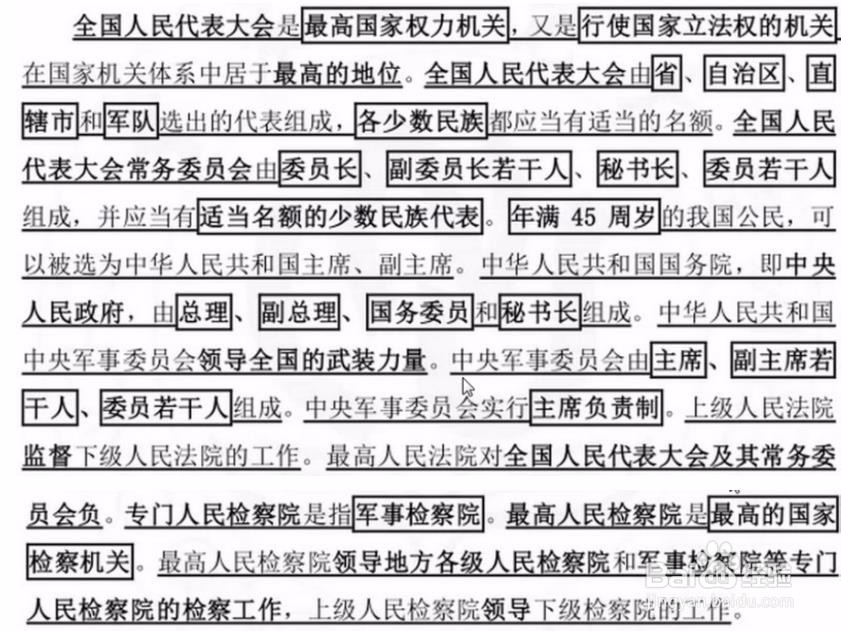 全国人民代表大会是最高国家权力机关，又是行使国家立法权的机关
在国家机关体系中居于最高的地位。全国人民代表大会由省、自治区、直
辖市和军队选出的代表组成，各少数民族都应当有适当的名额。全国人民
代表大会常务委员会由委员长、副委员长若干人、秘书长、委员若干人
组成，并应当有适当名额的少数民族代表。年满 45 周岁的我国公民，可
以被选为中华人民共和国主席、副主席。中华人民共和国国务院，即中央
人民政府，由总理、副总理、国务委员和秘书长组成。中华人民共和国
中央军事委员会领导全国的武装力量。中央军事委员会由主席、副主席若
干人、委员若干人组成。中央军事委员会实行主席负责制。上级人民法院
监督下级人民法院的工作。最高人民法院对全国人民代表大会及其常务委
员会负。专门人民检察院是指军事检察院。最高人民检察院是最高的国家
检察机关。最高人民检察院领导地方各级人民检察院和军事检察院等专门
人民检察院的检察工作，上级人民检察院领导下级检察院的工作。
Baidu 经验
jingyan.baidu.com